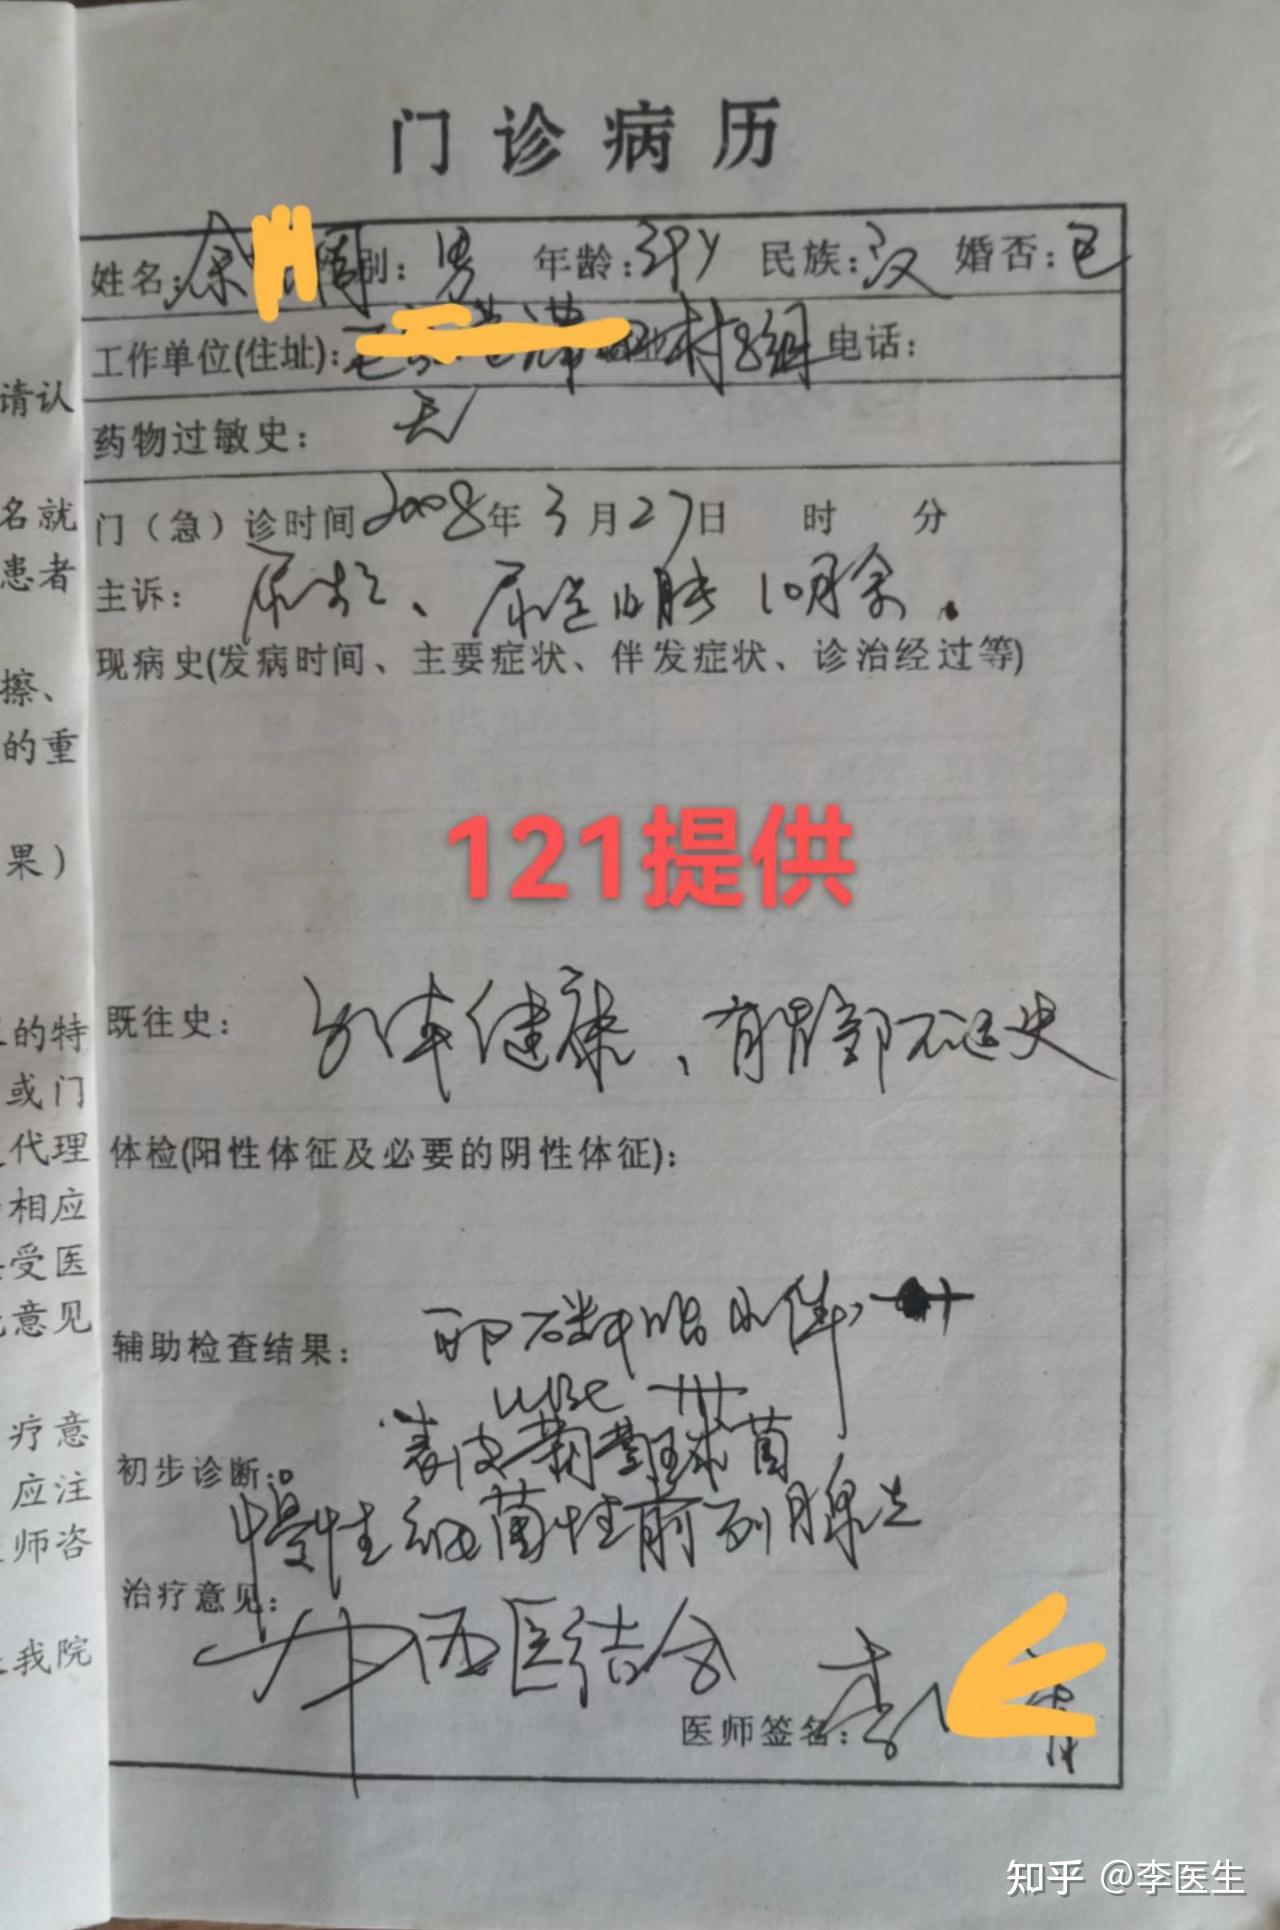 门诊病历
姓名：余 别：男 年龄：31y 民族：汉 婚否：已
工作单位(住址)： 村8组 电话：
药物过敏史： 无
门（急）诊时间2008年3月27日 时 分
主诉： 尿频、尿道口 10月余。
现病史(发病时间、主要症状、伴发症状、诊治经过等)
121提供
既往史： 健康、有胃部不适史
体检(阳性体征及必要的阴性体征)：
辅助检查结果： 卵磷脂小体 +
WBC +++
表皮葡萄球菌
初步诊断：
慢性细菌性前列腺炎
治疗意见：
中西医结合
医师签名：李
请认
名就
患者
擦、
的重
果）
的特
或门
代理
相应
受医
意见
疗意
应注
师咨
我院
知乎 @李医生